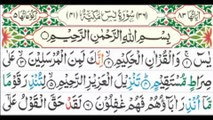 اٰیاتها ۸۳ (۳۶) سُوْرَةُ يٰسٓ مَكِّيَّةٌ (۴۱) رکوعاتها ۵
بِسْمِ اللّٰهِ الرَّحْمٰنِ الرَّحِيْمِ
يٰسٓ ۚ وَالْقُرْاٰنِ الْحَكِيْمِ ۙ اِنَّكَ لَمِنَ الْمُرْسَلِيْنَ ۙ عَلٰى
صِرَاطٍ مُّسْتَقِيْمٍ ؕ تَنْزِيْلَ الْعَزِيْزِ الرَّحِيْمِ ۙ لِتُنْذِرَ قَوْمًا مَّاۤ
اُنْذِرَ اٰبَآؤُهُمْ فَهُمْ غٰفِلُوْنَ لَقَدْ حَقَّ الْقَوْلُ عَلٰٓى